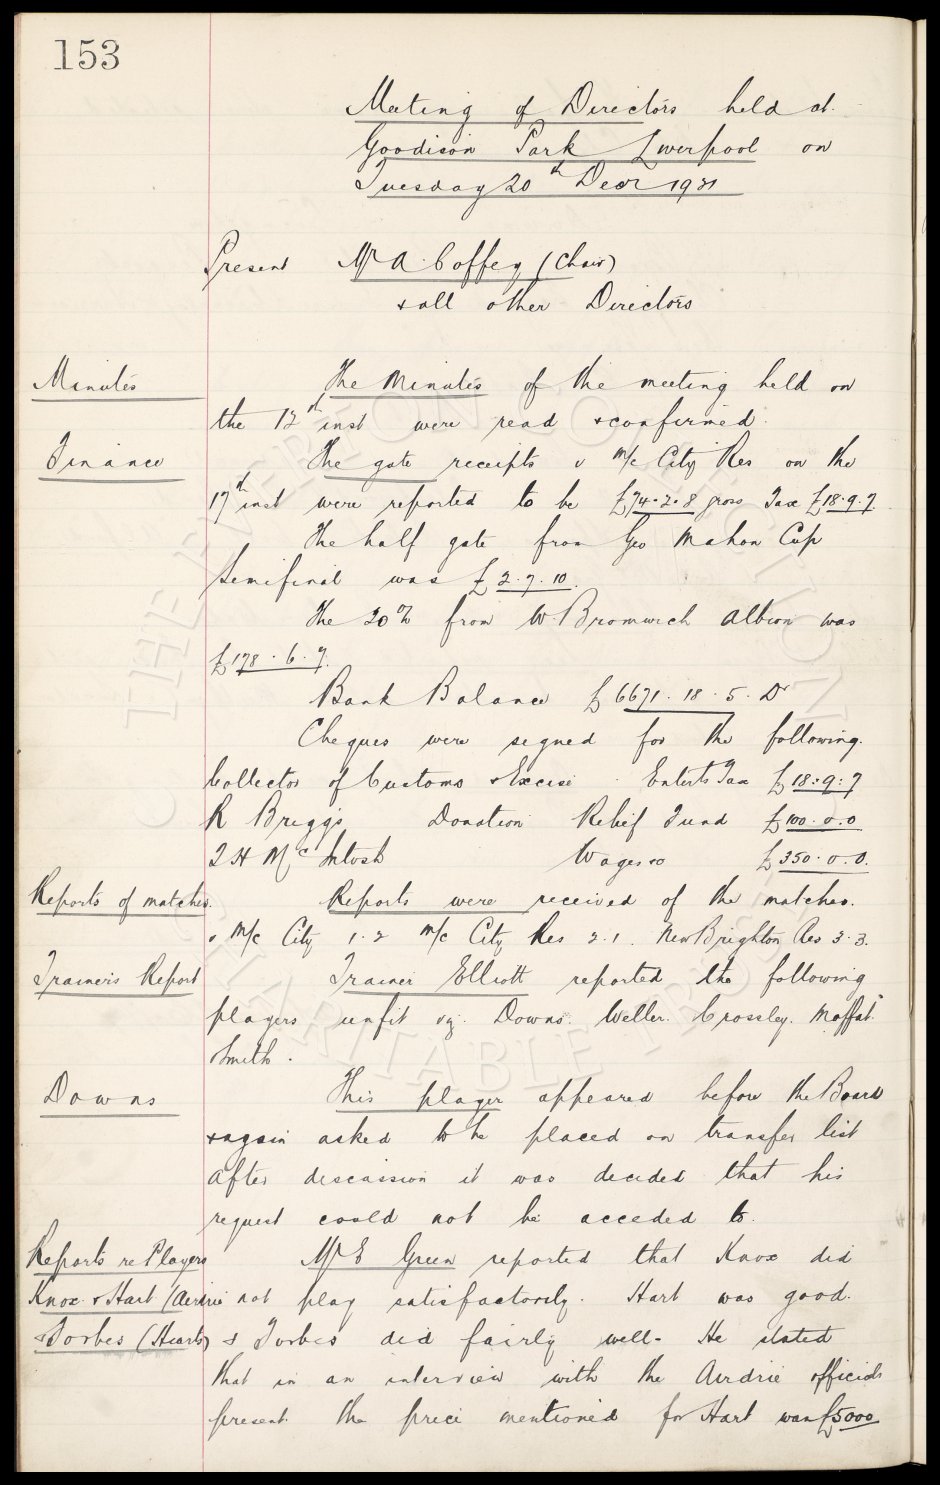 153
Meeting of Directors held at
Goodison Park Liverpool on
Tuesday 20th Decr 1921
Present Mr A. Coffey (Chair)
& all other Directors
Minutes The Minutes of the meeting held on
the 13th inst were read & confirmed.
Finance The gate receipts v M/c City Res on the
17th inst were reported to be £74.2.8 gross Tax £18.9.7.
The half gate from Geo Mahon Cup
Semifinal was £2.7.10.
The 20% from W. Bromwich Albion was
£178.6.7.
Bank Balance £6671.18.5. Dr
Cheques were signed for the following.
Collector of Customs & Excise Enterts Tax £18:9:7
R Briggs Donation Relief Fund £100.0.0
T H McIntosh Wages &c £350.0.0.
Reports of matches. Reports were received of the matches.
v M/c City 1.2 M/c City Res 2.1. New Brighton Res 3.3.
Trainers Report Trainer Elliott reported the following
players unfit viz. Downs. Weller. Crossley. Moffat.
Smith.
Downs This player appeared before the Board
& again asked to be placed on transfer list
After discussion it was decided that his
request could not be acceded to.
Reports re Players Mr E Green reported that Knox did
Knox & Hart (Airdrie not play satisfactorily. Hart was good.
& Forbes (Hearts) & Forbes did fairly well. He stated
that in an interview with the Airdrie officials
present the price mentioned for Hart was £5000
THE EVERTON COLLECTION
CHARITABLE TRUST